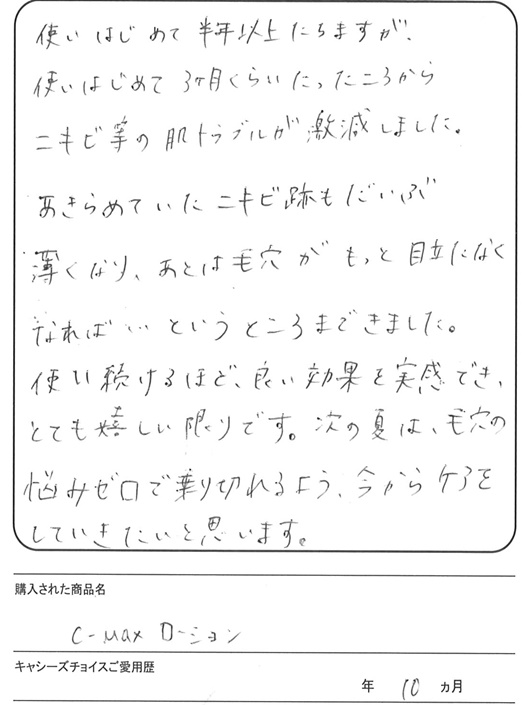 使いはじめて半年以上たちますが、
使いはじめて3ヶ月くらいたったころから
ニキビ等の肌トラブルが激減しました。
あきらめていたニキビ跡もだいぶ
薄くなり、あとは毛穴がもっと目立たなく
なればいいというところまできました。
使い続けるほど、良い効果を実感でき、
とても嬉しい限りです。次の夏は、毛穴の
悩みゼロで乗り切れるよう、今からケアを
していきたいと思います。
購入された商品名
C-MAXローション
キャシーズチョイスご愛用歴
年 10 ヵ月